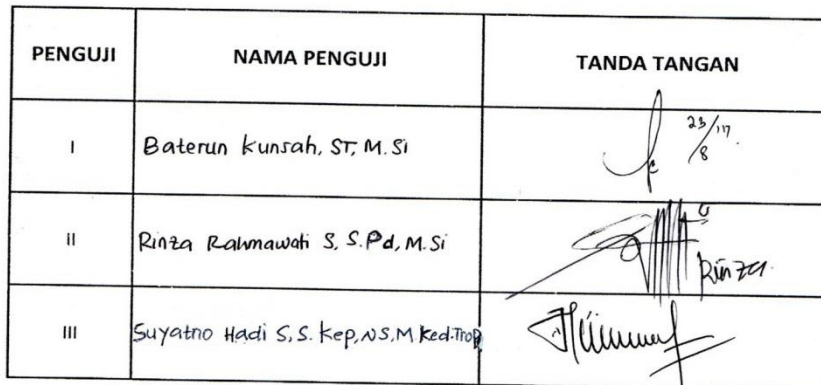 PENGUJI NAMA PENGUJI TANDA TANGAN
I Baterun Kunsah, ST, M.Si 23/8 '17.
II Rinza Rahmawati S, S.Pd, M.Si Rinza
III Suyatno Hadi S, S.Kep, NS, M.Ked.Trop